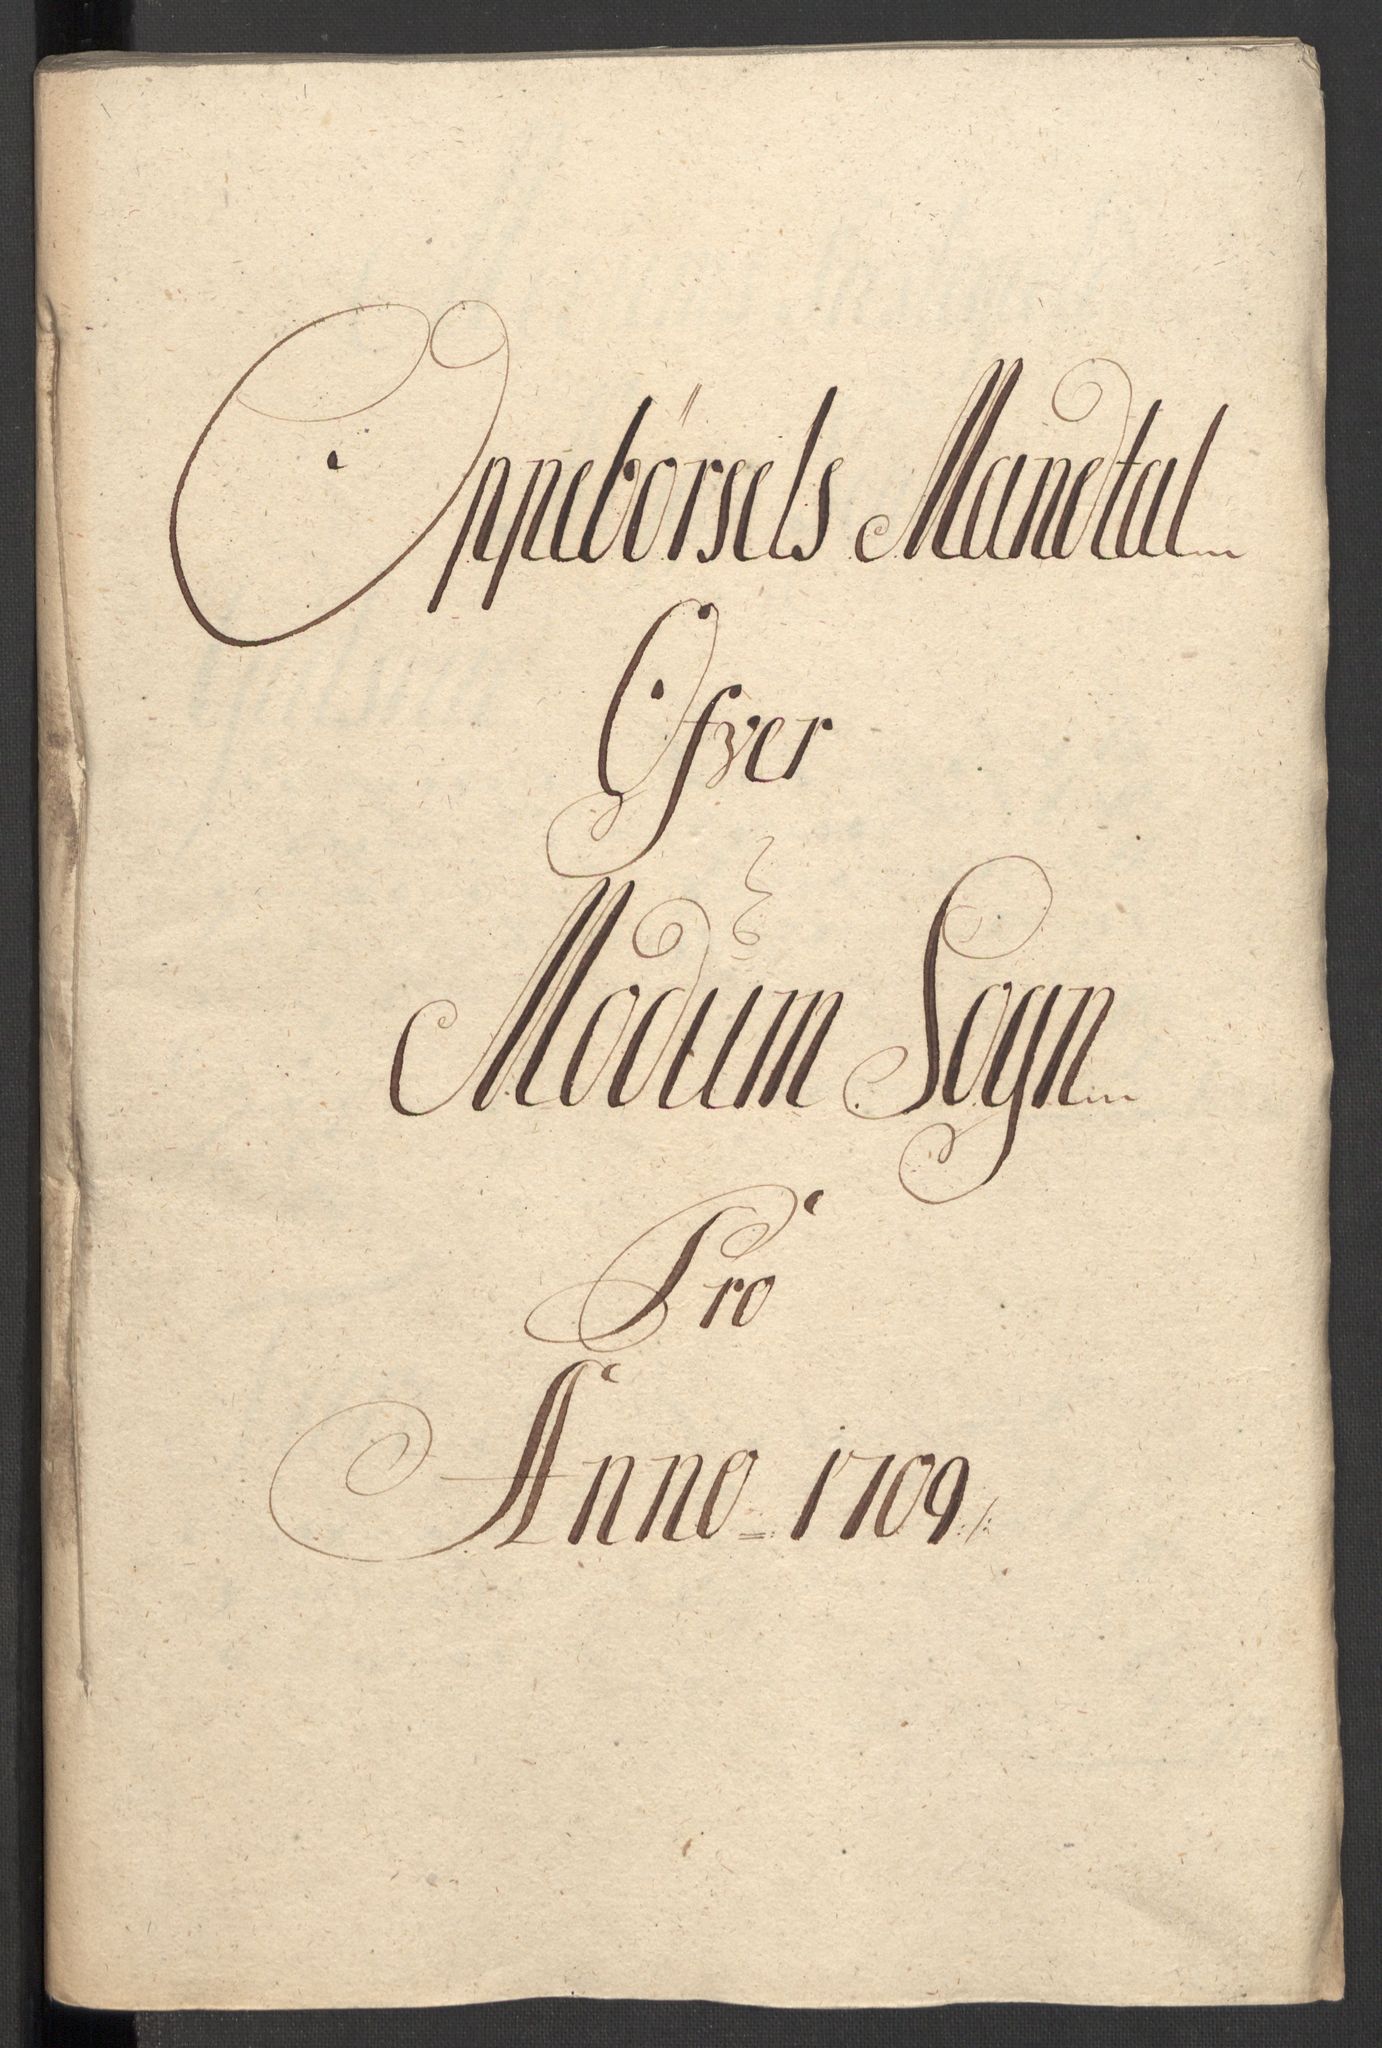 Oppebörsels Mandtal
Ofver
Modŭm Sogn
Pro
Anno 1709